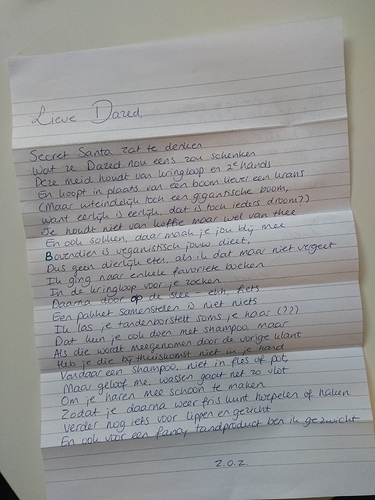 Lieve Dazed,
Secret Santa zat te denken
Wat ze Dazed nou eens zou schenken
Deze meid houdt van kringloop en 2e hands
En hoopt in plaats van een boom liever een krans
(Maar uiteindelijk toch een gigantische boom,
Want eerlijk is eerlijk, dat is toch ieders droom?)
Je houdt niet van koffie maar wel van thee
En ook sokken, daar maak je jou blij mee
Bovendien is veganistisch jouw dieet,
Dus geen dierlijk eten, als ik dat maar niet vergeet
Ik ging naar enkele favoriete boeken
In de kringloop voor je zoeken
Daarna door op de slee - ehh, fiets
Een pakket samenstellen is niet niets
Ik las je tandenborstelt soms je haar (???)
Dat kun je ook doen met shampoo, maar
Als die wordt meegenomen door de vorige klant
Heb je die bij thuiskomst niet in je hand
Vandaar een shampoo, niet in fles of pot,
Maar geloof me, wassen gaat net zo vlot
Om je haren mee schoon te maken
Zodat je daarna weer fris kunt hoepelen of haken
Verder nog iets voor lippen en gezicht
En ook voor een fancy tandproduct ben ik gezwicht
Z.O.Z.